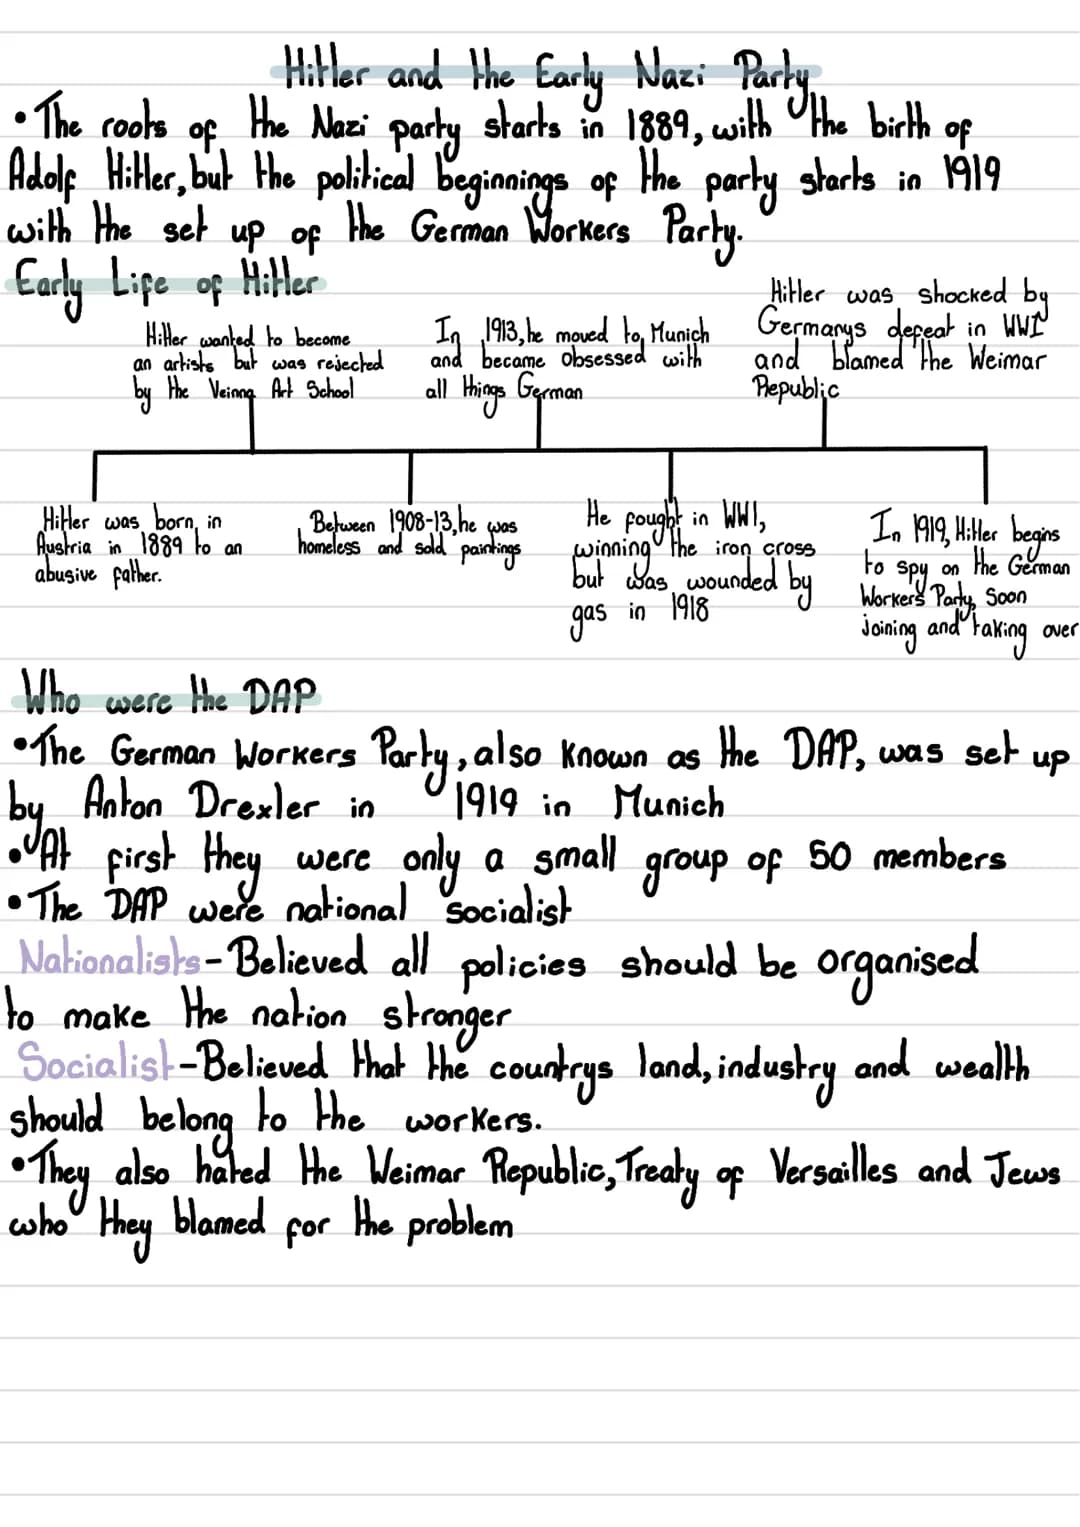 Hitler and the Early Nazi Party
•The roots of the Nazi party starts in 1889, with the birth of
Adolf Hitler, but the political beginnings of the party starts in 1919
with the set up of the German Workers Party.
Early Life of Hitler
Hitler wanted to become
an artists but was rejected
by the Veinna Art School
In 1913, he moved to Munich
and became obsessed with
all things German
Hitler was shocked by
Germanys defeat in WWI
and blamed the Weimar
Republic
Hitler was born in
Austria in 1889 to an
abusive father.
Between 1908-13, he was
homeless and sold paintings
He fought in WWI,
winning the iron cross
but was wounded by
gas in 1918
In 1919, Hitler begins
to spy on the German
Workers Party, Soon
joining and taking over
Who were the DAP
•The German Workers Party, also known as the DAP, was set up
by Anton Drexler in 1919 in Munich
•At first they were only a small group of 50 members
•The DAP were national socialist
Nationalists-Believed all policies should be organised
to make the nation stronger
Socialist-Believed that the countrys land, industry and wealth
should belong to the workers.
•They also hated the Weimar Republic, Treaty of Versailles and Jews
who they blamed for the problem